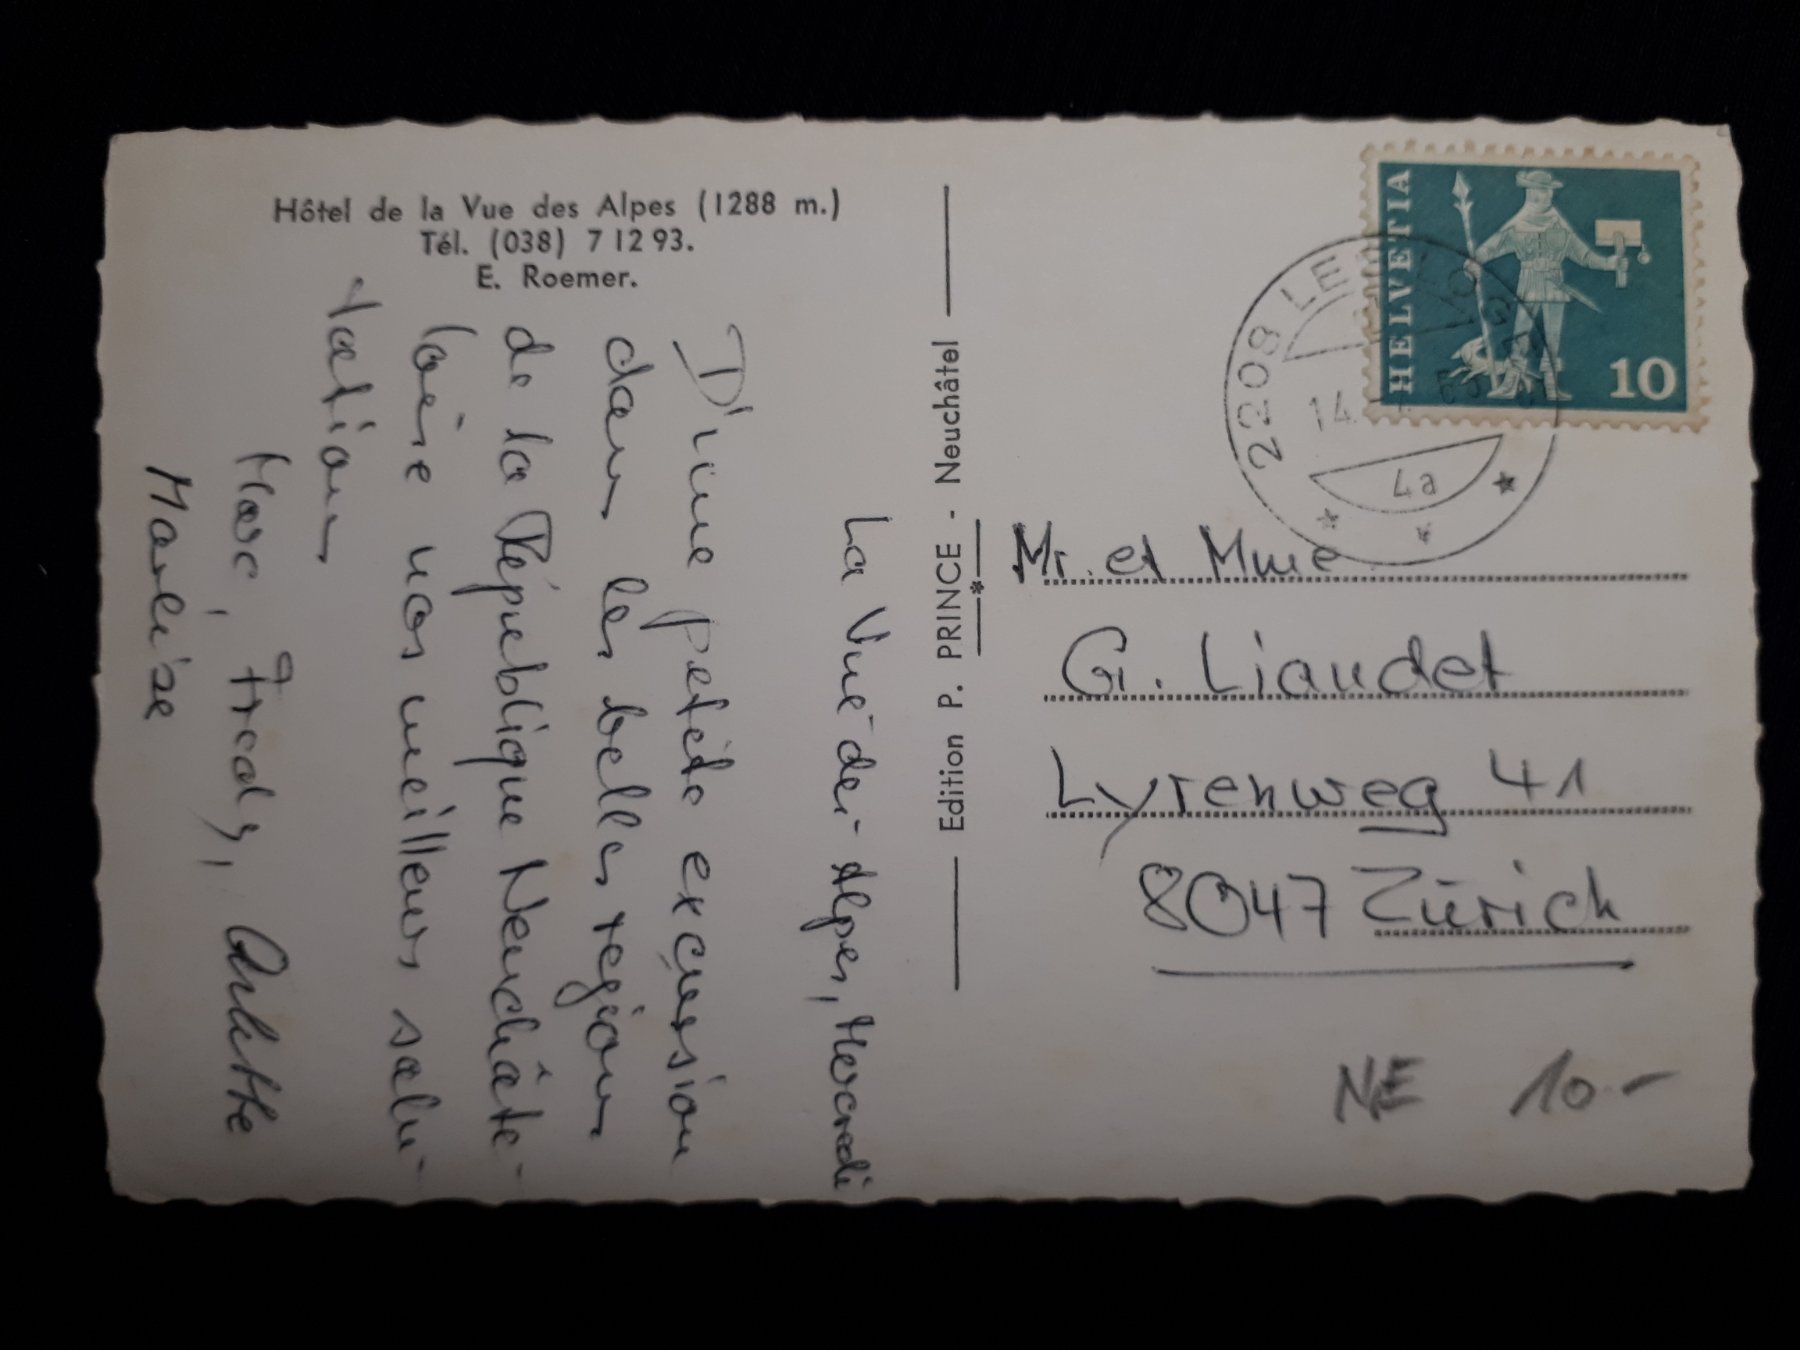 Hôtel de la Vue des Alpes (1288 m.)
Tél. (038) 7 12 93.
E. Roemer.
La Vue-des-Alpes, Mercredi
D'une petite excursion
dans les belles régions
de la République Neuchâte-
loise nos meilleurs salu-
tations
Marc, Fredy, Arlette
Marlise
Edition P. PRINCE - Neuchâtel
HELVETIA
10
2208 LE
14.
4a
Mr. et Mme
G. Liaudet
Lyrenweg 41
8047 Zürich
NE 10.-